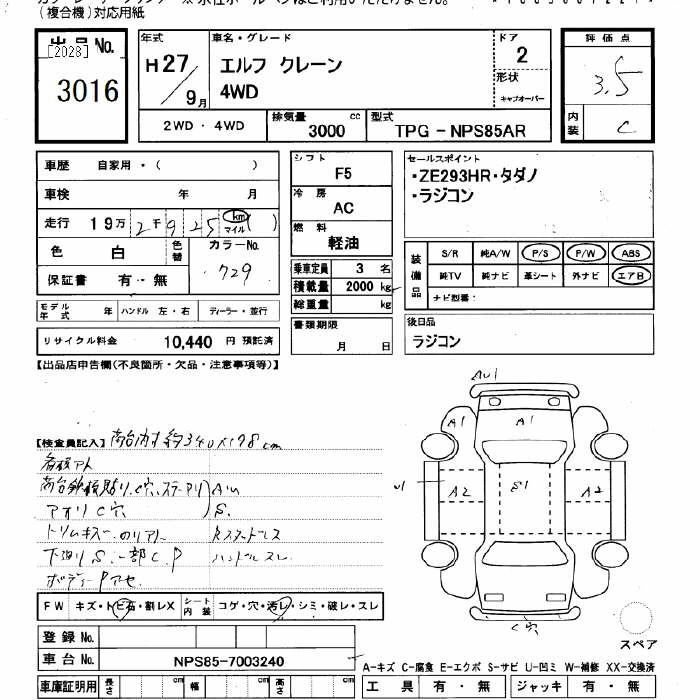 (複合機)対応用紙
出品 No.
[2028]
3016
年式
H27/9月
車名・グレード
エルフ クレーン
4WD
ドア
2
形状
キャブオーバー
評価点
3.5
内装
C
2WD・4WD
排気量
3000 cc
型式
TPG-NPS85AR
車歴 自家用・( )
車検 年 月
走行 19万2千925 km マイル ( )
色 白 色替 カラーNo. 729
保証書 有・無
シフト
F5
冷房
AC
燃料
軽油
乗車定員 3 名
積載量 2000 kg
総重量 kg
セールスポイント
・ZE293HR・タダノ
・ラジコン
装備品
S/R 純A/W P/S P/W ABS
純TV 純ナビ 革シート 外ナビ エアB
ナビ型番:
モデル年式 年 ハンドル 左・右 ディーラー・並行
リサイクル料金 10,440 円 預託済
書類期限
月 日
後日品
ラジコン
【出品店申告欄(不良箇所・欠品・注意事項等)】
【検査員記入】荷台内寸約340×178cm
下廻りS、一部C、P ハンドルスレ
ボディーPアセ
A1
A1
A2
S1
A2
C穴
FW キズ・トビ石・割レX シート内装 コゲ・穴・汚レ・シミ・破レ・スレ
登録 No.
車台 No. NPS85-7003240
スペア
A-キズ C-腐食 E-エクボ S-サビ U-凹ミ W-補修 XX-交換済
車庫証明用 長さ cm 幅 cm 高さ cm
工具 有・無 ジャッキ 有・無